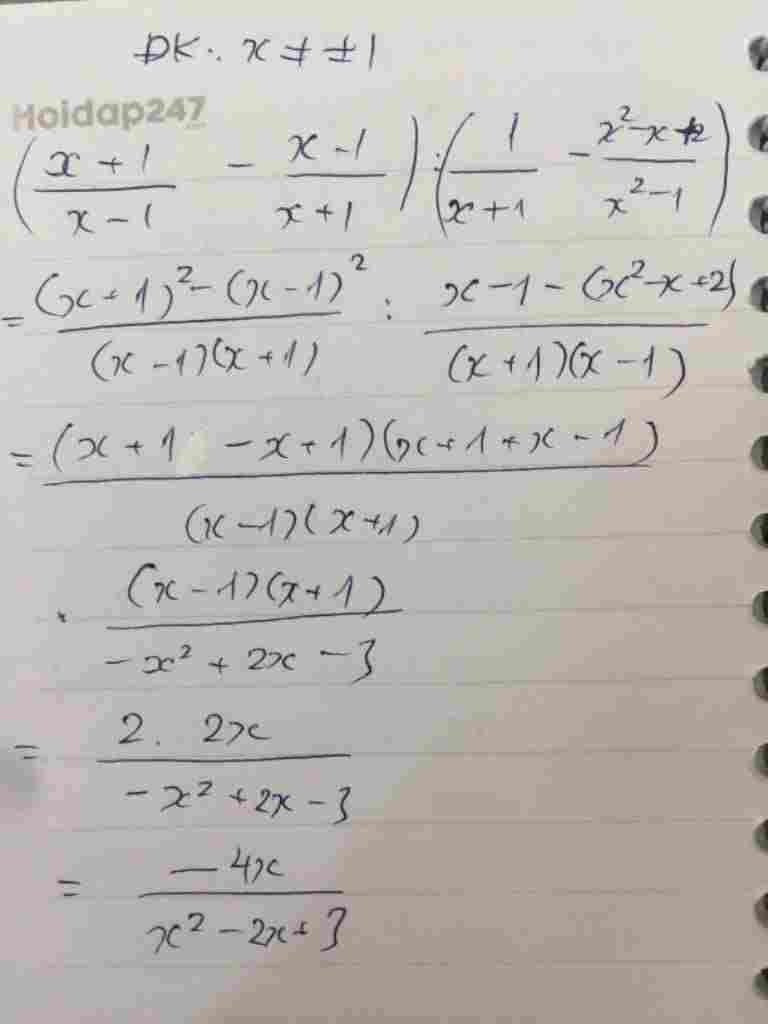 ĐK: x ≠ ±1
Hoidap247
((x+1)/(x-1) - (x-1)/(x+1)) : (1/(x+1) - (x²-x+2)/(x²-1))
= ((x+1)²-(x-1)²)/((x-1)(x+1)) : (x-1-(x²-x+2))/((x+1)(x-1))
= ((x+1-x+1)(x+1+x-1))/((x-1)(x+1))
. ((x-1)(x+1))/(-x²+2x-3)
= (2.2x)/(-x²+2x-3)
= (-4x)/(x²-2x+3)